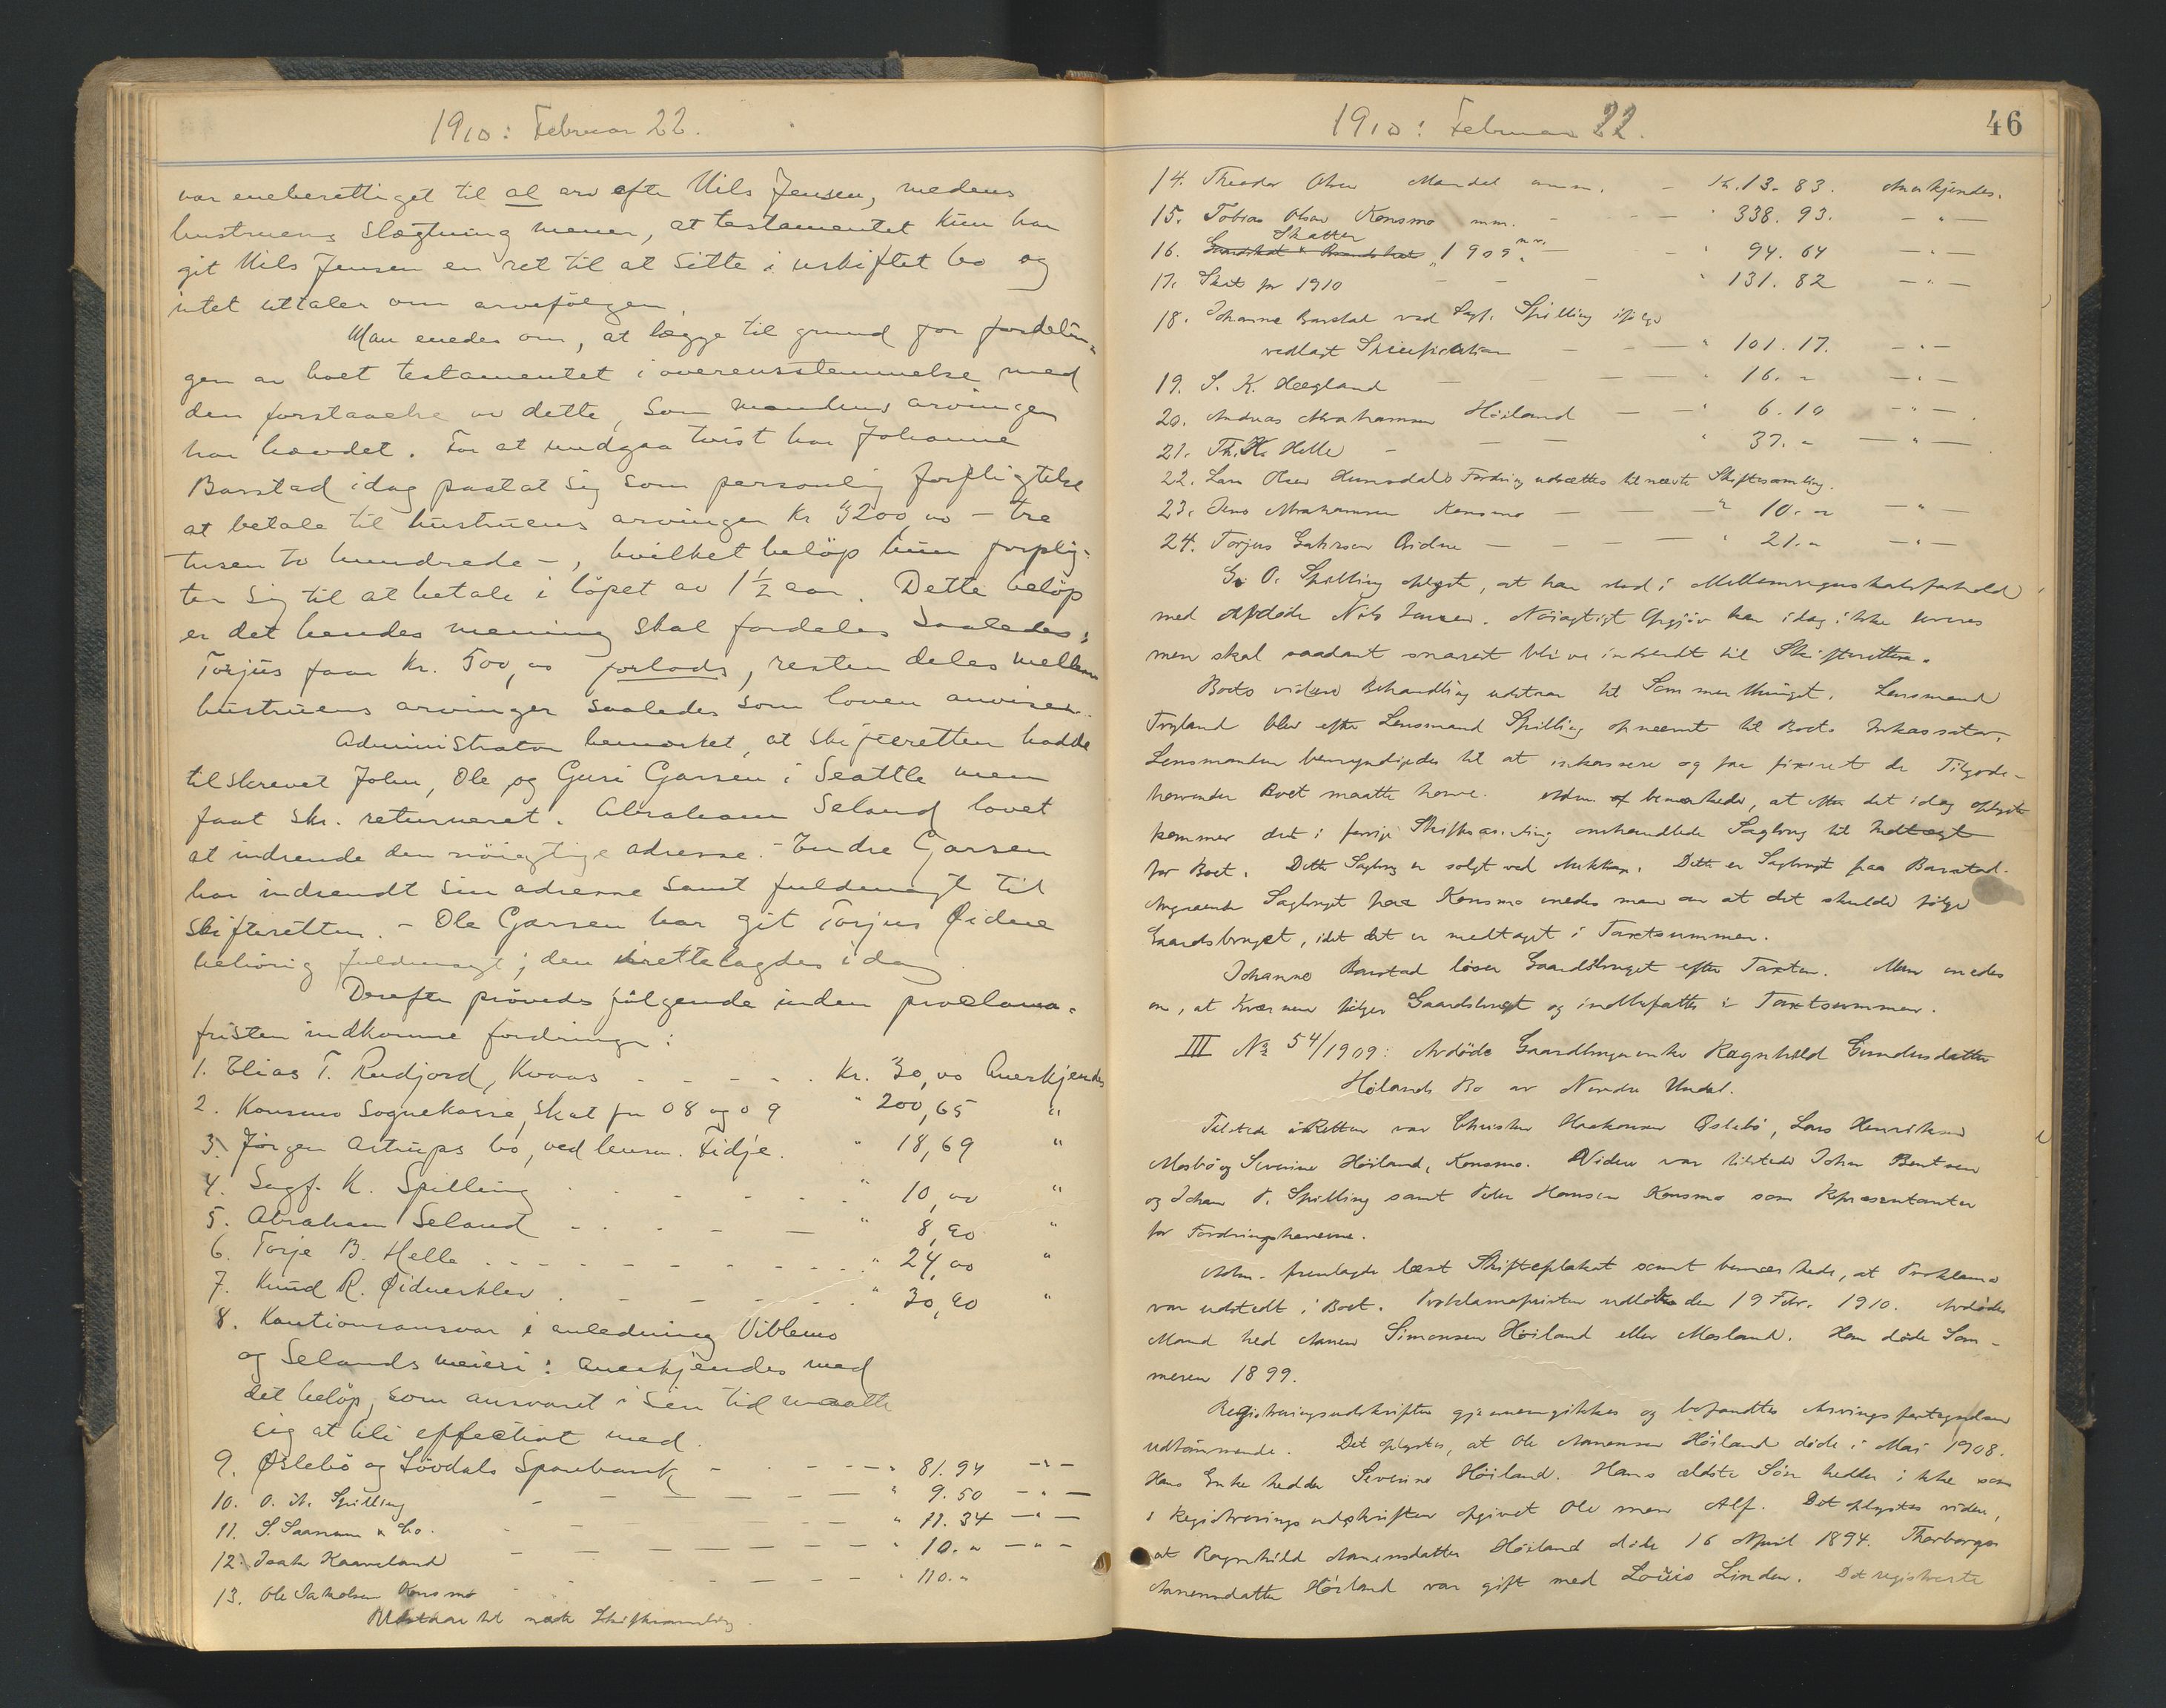 1910: Februar 22.
var eneberettiget til al arv efter Nils Jensen, medens
hustruens slægtning mener, at testamentet kun har
git Nils Jensen en ret til at sitte i uskiftet bo og
intet uttaler om arvefölgen.
Man enedes om, at lægge til grund for fordelin-
gen av boet testamentet i overensstemmelse med
den forstaaelse av dette, som mandens arvinger
har hævdet. For at undgaa tvist har Johanne
Barstad idag paatat sig som personlig forpligtelse
at betale til hustruens arvinger Kr 3200,00 - tre
tusen to hundrede -, hvilket belöp hun forplig-
ter sig til at betale i löpet av 1½ aar. Dette belöp
er det hendes mening skal fordeles saaledes:
Torjus faar Kr. 500,00 forlods, resten deles mellem
hustruens arvinger saaledes som loven anviser.
Administrator bemerket, at skifteretten hadde
tilskrevet John, Ole og Guri Garsen i Seattle men
faat skr. returneret. Abraham Seland lovet
at indsende den nöiagtige adresse. - Endre Garsen
har indsendt sin adresse samt fuldmagt til
skifteretten. - Ole Garsen har git Torjus Øidne
behörig fuldmagt; den irettelagdes idag.
Derefter prövedes fölgende inden proclama-
fristen indkomne fordringer:
1. Elias T. Rudjord, Kvaas - - - - Kr. 30,00 Anerkjendes
2. Konsmo Sognekasse, skat for 08 og 09 " 200,65 "
3. Jörgen Astrups bo, ved lensm. Fidje. " 18,69 "
4. Sagf. K. Spilling - - - - " 10,00 "
5. Abraham Seland - - - - " 8,90 "
6. Torje B. Helle - - - - " 24,00 "
7. Knud R. Øidnesklev - - - - " 30,90 "
8. Kautionsansvar i anledning Viblemo
og Selands meieri: anerkjendes med
det belöp, som ansvaret i sin tid maatte
sig at bli effectivt med.
9. Øslebö og Lövdals Sparebank - - - " 81.94 - " -
10. O. A. Spilling - - - - " 9.50 - " -
11. S. Saanum & Co. - - - - " 11.34 - " -
12. Kaaveland - - - - " 10. " - " -
13. Ole Jakobsen Konsmo - - - - " 110. "
Udstaar til næste Skiftesamling.
1910: Februar 22.
46
14. Theodor Olsen Mandal - Kr. 13.83. Anerkjendes.
15. Tobias Olsen Konsmo mm. - - - " 338.93. - " -
16. Skatter 1909 - - " 94.64 - " -
17. Skat for 1910 - - - " 131.82 - " -
18. Johanne Barstad ved Sagf. Spilling ifölge
vedlagt Specifikation - - - " 101.17. - " -
19. S. K. Hægland - - - - " 16. " - " -
20. Andreas Abrahamsen Höiland - - " 6.10 - " -
21. Th. K. Helle - - - " 37. " - " -
22. Lars Olsen Fordring udsættes til næste Skiftesamling.
23. Jens Abrahamsen Konsmo - - - " 10. " - " -
24. Torjus Øidne - - - - " 21. " - " -
G. O. Spilling oplyste, at han stod i Mellemregnskabsforhold
med afdöde Nils Jensen. Nöiagtigt Opgjör kan idag ikke leveres
men skal saadant snarest blive indsendt til Skifteretten.
Boets videre Behandling udstaar til Sommerthinget. Lensmand
Tryland blev efter Lensmand Spilling opnævnt til Boets Inkassator.
Lensmanden bemyndigedes til at inkassere og faa fixeret de Tilgode-
havender Boet maatte have. Adm. bemærkede, at efter det idag oplyste
kommer det i forrige Skiftesamling omhandlede Sagbrug til Indtægt
for Boet. Dette Sagbrug er solgt ved Auktion. Dette er Sagbruget paa Barstad.
Angaaende Sagbruget paa Konsmo enedes man om at det skulde fölge
Gaardsbruget, idet det er medtaget i Taxtsummen.
Johanne Barstad löser Gaardsbruget efter Taxten. Man enedes
om, at Kværnen fölger Gaardsbruget og indbefattes i Taxtsummen.
III No 54/1909: Avdöde Gaardbrugerenke Ragnhild Gundersdatter
Höilands Bo av Nordre Undal.
Tilstede i Retten var Christen Haakonsen Øslebö, Lars Henriksen
Mosbö og Severine Höiland, Konsmo. Videre var tilstede John Bentsen
og Johan T. Spilling samt Peder Hansen Konsmo som Repræsentanter
for Fordringshaverne.
Adm. fremlagde læst Skifteplakat samt bemærkede, at Proklama
var udstedt i Boet. Proklamafristen udlöb den 19 Febr. 1910. Avdödes
Mand hed Aanen Simonsen Höiland eller Mosland. Han döde Som-
meren 1899.
Registreringsudskriften gjennemgikkes og befandtes Arvingsfortegnelsen
udtömmende. Det oplystes, at Ole Aanensen Höiland döde i Mai 1908.
Hans Enke hedder Severine Höiland. Hans ældste Sön hedder ikke som
i Registreringsudskriften opgivet Ole men Alf. Det oplystes videre,
at Ragnhild Aanensdatter Höiland döde 16 April 1894. Thorborg
Aanensdatter Höiland var gift med Louis Linden. Det registrerte